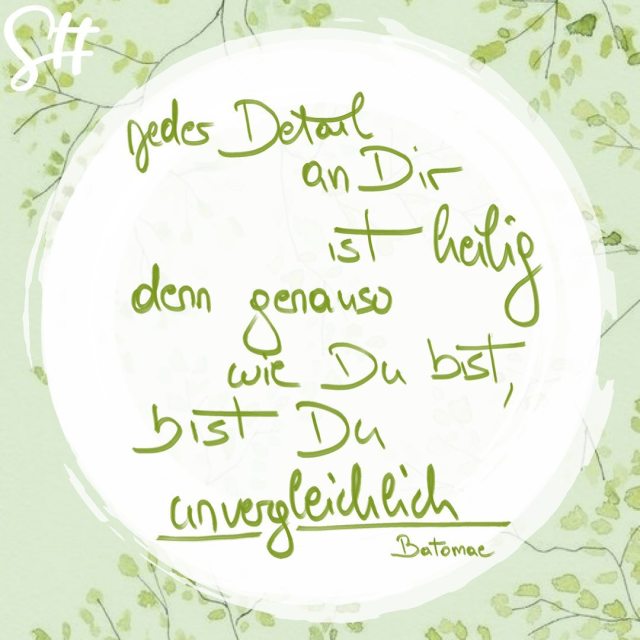 SH
jedes Detail
an Dir
ist heilig
denn genauso
wie Du bist,
bist Du
unvergleichlich
Batomae